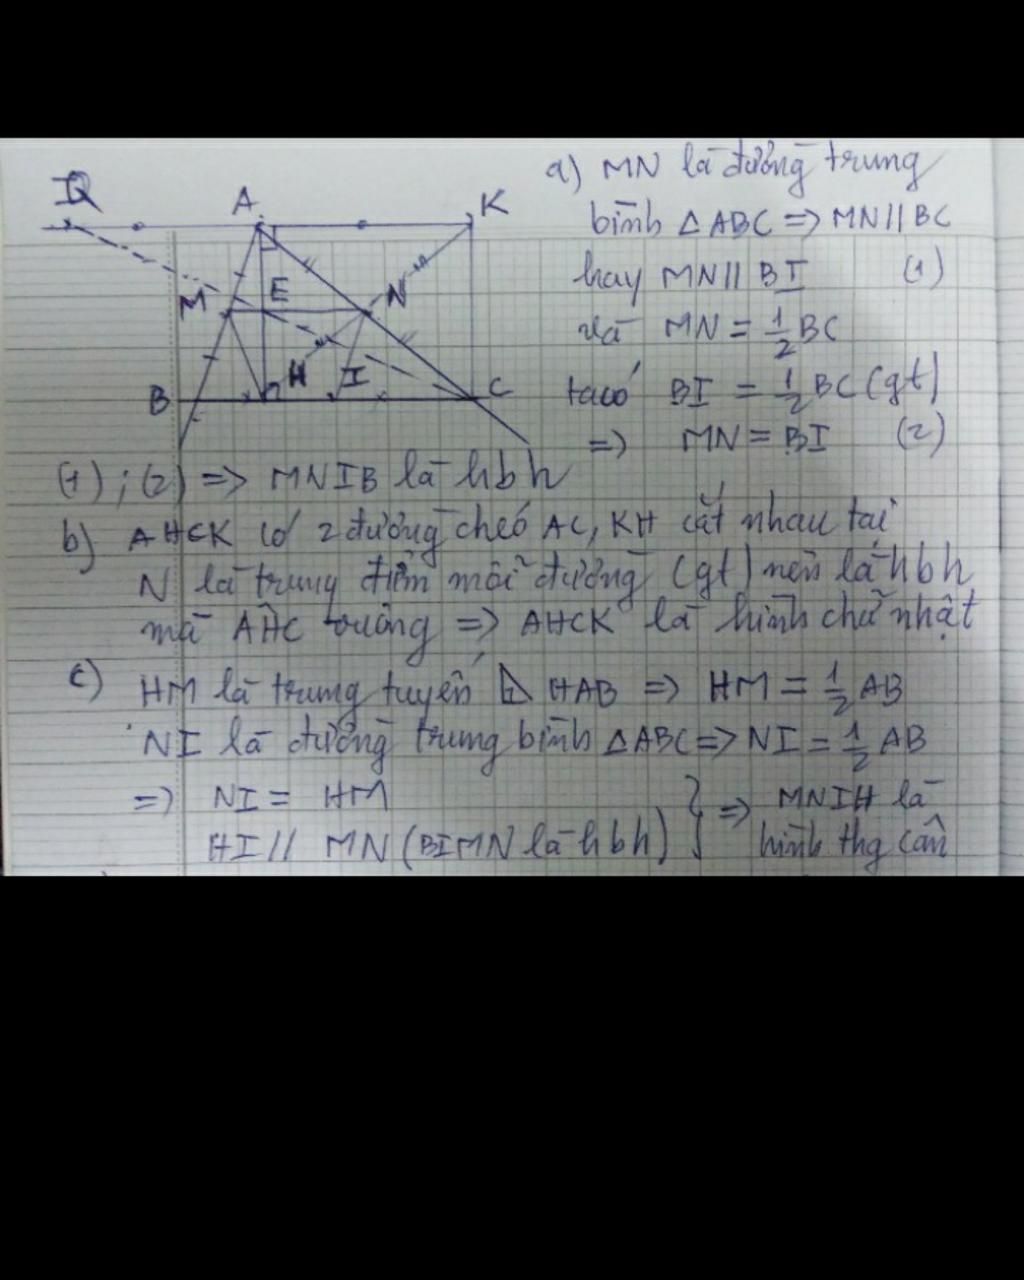 Q A K
M E N
B H I C
a) MN là đường trung
bình △ABC => MN // BC
hay MN // BI (1)
và MN = 1/2 BC
ta có BI = 1/2 BC (gt)
=> MN = BI (2)
(1) ; (2) => MNIB là hbh
b) AHCK có 2 đường chéo AC, KH cắt nhau tại
N là trung điểm mỗi đường (gt) nên là hbh
mà AĤC vuông => AHCK là hình chữ nhật
c) HM là trung tuyến ⊿ HAB => HM = 1/2 AB
NI là đường trung bình △ABC => NI = 1/2 AB
=> NI = HM
HI // MN (BIMN là hbh) } => MNIH là
hình thg cân